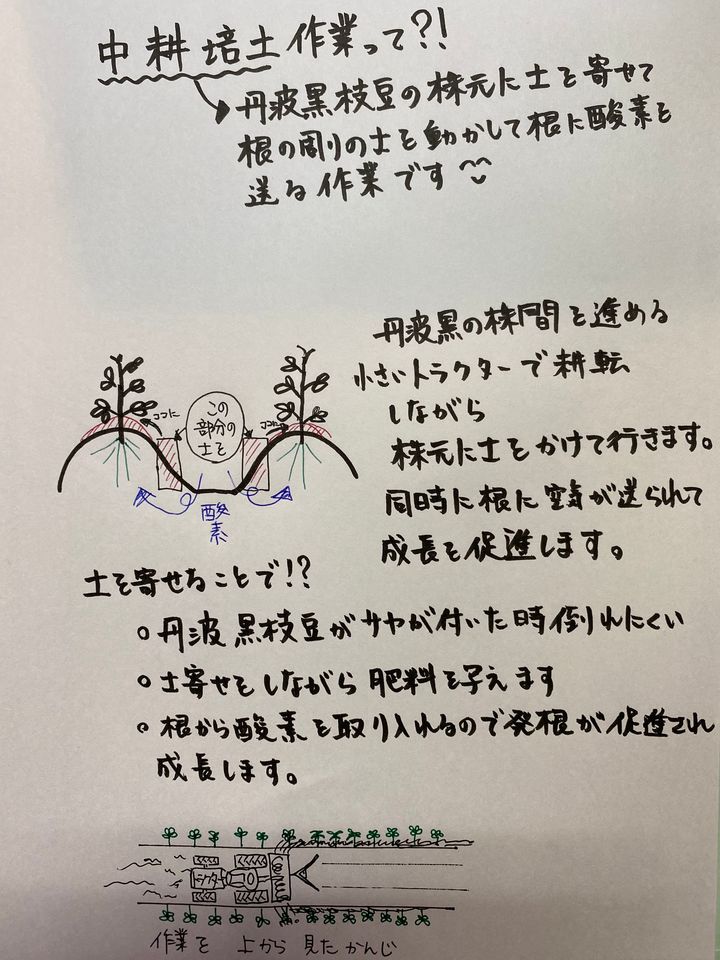 中耕培土作業って?!
丹波黒枝豆の株元に土を寄せて
根の周りの土を動かして根に酸素を
送る作業です
丹波黒の株間を進める
小さいトラクターで耕転
しながら
株元に土をかけて行きます。
同時に根に空気が送られて
成長を促進します。
ココに
この
部分の
土を
ココに
酸素
土を寄せることで!?
○丹波黒枝豆がサヤが付いた時倒れにくい
○土寄せをしながら肥料を与えます
○根から酸素を取り入れるので発根が促進され
成長します。
トラクター
作業を 上から 見たかんじ